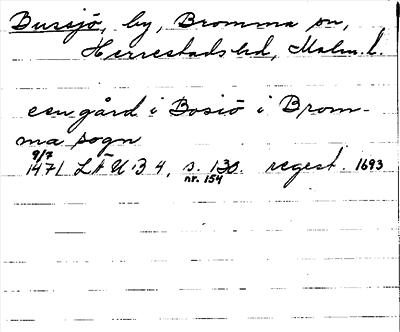 Bussjö, by, Bromma sn,
Herrestads hd, Malm. l.
een gård i Bosiö i Brom-
ma sogn
9/7
1471 LÄUB 4, s. 138. regest. 1693
nr. 154